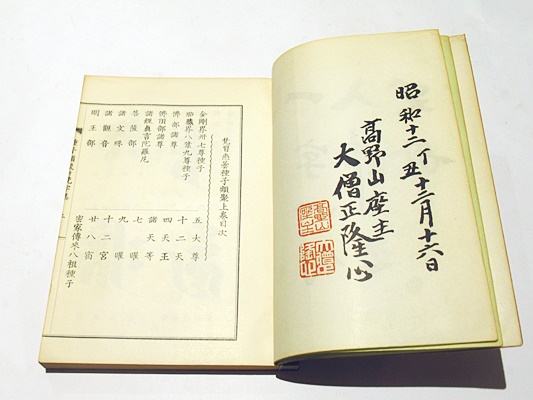 昭和十二丁丑十二月十六日
高野山座主
大僧正隆心
悉曇種子類聚上卷目次
金剛界卅七尊種子
胎藏界八葉九尊種子
佛部諸尊
佛頂諸尊
諸經真言陀羅尼
菩薩部
諸文殊
諸觀音
明王部
五大尊
十二天
四天王
諸天等
七曜
九曜
十二宮
廿八宿
密家傳來八祖種子